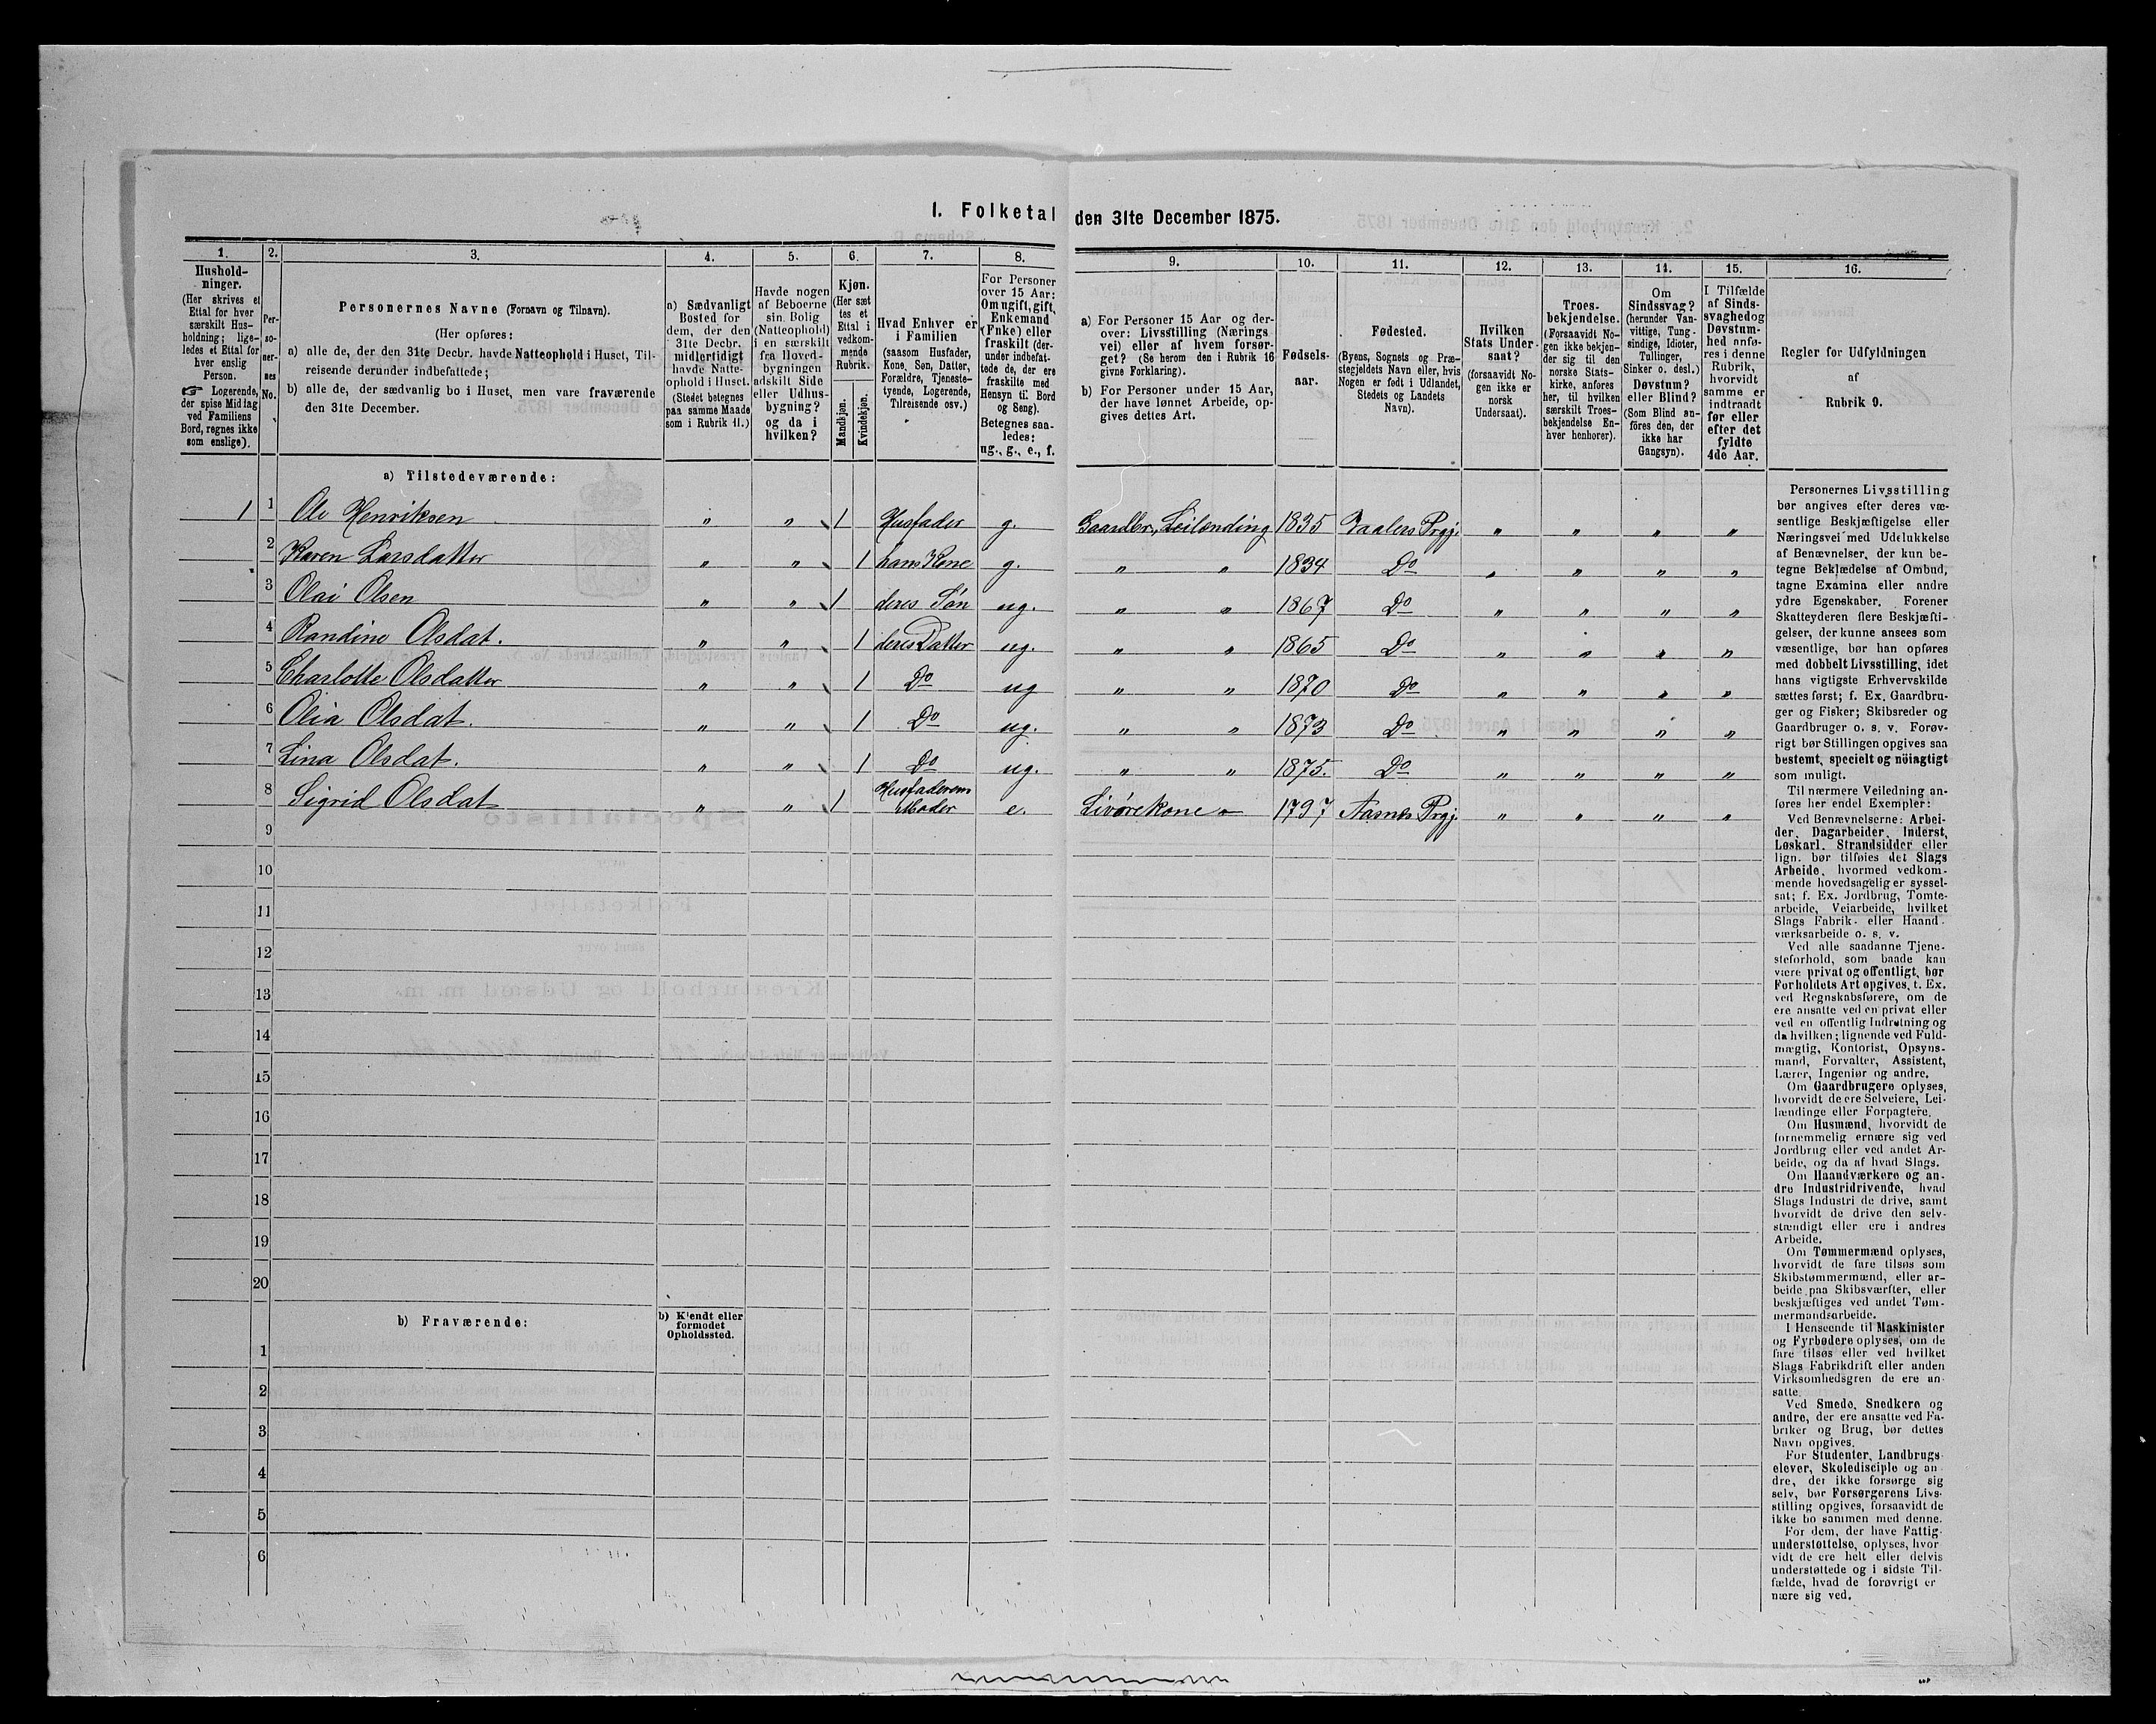 1. Folketal den 31te December 1875.
1.
Hushold-
ninger.
(Her skrives et
Ettal for hver
særskilt Hus-
holdning; lige-
ledes et Ettal for
hver enslig
Person.
☞ Logerende,
der spise Middag
ved Familiens
Bord, regnes ikke
som enslige).
2.
Per-
so-
ner-
nes
No.
3.
Personernes Navne (Fornavn og Tilnavn).
(Her opføres:
a) alle de, der den 31te Decbr. havde Natteophold i Huset, Til-
reisende derunder indbefattede;
b) alle de, der sædvanlig bo i Huset, men vare fraværende
den 31te December.
4.
a) Sædvanligt
Bosted for
dem, der den
31te Decbr.
midlertidigt
havde Natte-
ophold i Huset.
(Stedet betegnes
paa samme Maade
som i Rubrik 11.)
5.
Havde nogen
af Beboerne
sin Bolig
(Natteophold)
i en særskilt
fra Hoved-
bygningen
adskilt Side
eller Udhus-
bygning?
og da i
hvilken?
6.
Kjøn.
(Her sæt
tes et
Ettal i
vedkom-
mende
Rubrik.
Mandkjøn.
Kvindekjøn.
7.
Hvad Enhver er
i Familien
(saasom Husfader,
Kone, Søn, Datter,
Forældre, Tjeneste-
tyende, Logerende,
Tilreisende osv.)
8.
For Personer
over 15 Aar:
Om ugift, gift,
Enkemand
(Enke) eller
fraskilt (der-
under indbefat-
tede de, der ere
fraskilte med
Hensyn til Bord
og Seng).
Betegnes saa-
ledes:
ug., g., e., f.
9.
a) For Personer 15 Aar og der-
over: Livsstilling (Nærings
vei) eller af hvem forsør-
get? (Se herom den i Rubrik 16
givne Forklaring).
b) For Personer under 15 Aar,
der have lønnet Arbeide, op-
gives dettes Art.
10.
Fødsels-
aar.
11.
Fødested.
(Byens, Sognets og Præ-
stegjeldets Navn eller, hvis
Nogen er født i Udlandet,
Stedets og Landets
Navn).
12.
Hvilken
Stats Under-
saat?
(forsaavidt No-
gen ikke er
norsk
Undersaat).
13.
Troes-
bekjendelse.
(Forsaavidt No-
gen ikke bekjen-
der sig til den
norske Stats-
kirke, anføres
her, til hvilken
særskilt Troes-
bekjendelse En-
hver henhører).
14.
Om
Sindssvag?
(herunder Van-
vittige, Tung-
sindige, Idioter,
Tullinger,
Sinker o. desl.)
Døvstum?
eller Blind?
(Som Blind an-
føres den, der
ikke har
Gangsyn).
15.
I Tilfælde
af Sinds-
svaghed og
Døvstum-
hed anfø-
res i denne
Rubrik,
hvorvidt
samme er
indtraadt
før eller
efter det
fyldte
4de Aar.
16.
Regler for Udfyldningen
af
Rubrik 9.
a) Tilstedeværende:
1 1 Ole Henriksen " " 1 Husfader g. Gaardbr, Leilending 1835 Vaalers Prgj. " " " "
2 Karen Larsdatter " " 1 hans Kone g. " " 1834 Do " " " "
3 Olai Olsen " " 1 deres Søn ug. " " 1867 Do " " " "
4 Randine Olsdat. " " 1 deres Datter ug. " " 1865 Do " " " "
5 Charlotte Olsdatter " " 1 Do ug " " 1870 Do " " " "
6 Olia Olsdat. " " 1 Do ug. " " 1873 Do " " " "
7 Lina Olsdat. " " 1 Do ug. " " 1875. Do " " " "
8 Sigrid Olsdat " " 1 Husfaderens
Moder e. Livørekone 1797 Aasnes Prgj. " " " "
9
10
11
12
13
14
15
16
17
18
19
20
b) Fraværende:
b) Kjendt eller
formodet
Opholdssted.
1
2
3
4
5
6
Personernes Livsstilling
bør angives efter deres væ-
sentlige Beskjæftigelse eller
Næringsvei med Udelukkelse
af Benævnelser, der kun be-
tegne Beklædelse af Ombud,
tagne Examina eller andre
ydre Egenskaber. Forener
Skatteyderen flere Beskjæfti-
gelser, der kunne ansees som
væsentlige, bør han opføres
med dobbelt Livsstilling, idet
hans vigtigste Erhvervskilde
sættes først; f. Ex. Gaardbru-
ger og Fisker; Skibsreder og
Gaardbruger o. s. v. Forøv-
rigt bør Stillingen opgives saa
bestemt, specielt og nöiagtigt
som muligt.
Til nærmere Veiledning an-
føres her endel Exempler:
Ved Benævnelserne: Arbei-
der, Dagarbeider, Inderst,
Løskarl, Strandsidder eller
lign. bør tilføies det Slags
Arbeide, hvormed vedkom-
mende hovedsagelig er syssel-
sat; f. Ex. Jordbrug, Tomte-
arbeide, Veiarbeide, hvilket
Slags Fabrik- eller Haand-
værksarbeide o. s. v.
Ved alle saadanne Tjene-
steforhold, som baade kan
være privat og offentligt, bør
Forholdets Art opgives, t. Ex.
ved Regnskabsførere, om de
ere ansatte ved en privat eller
ved en offentlig Indretning og
da hvilken; lignende ved Fuld-
mægtig, Kontorist, Opsyns-
mand, Forvalter, Assistent,
Lærer, Ingeniør og andre.
Om Gaardbrugere oplyses,
hvorvidt de ere Selveiere, Lei-
lændinge eller Forpagtere.
Om Husmænd, hvorvidt de
fornemmelig ernære sig ved
Jordbrug eller ved andet Ar-
beide, og da af hvad Slags.
Om Haandværkere og an-
dre Industridrivende, hvad
Slags Industri de drive, samt
hvorvidt de drive den selv-
stændigt eller ere i andres
Arbeide.
Om Tømmermænd oplyses,
hvorvidt de fare tilsøs som
Skibstømmermænd, eller ar-
beide paa Skibsværfter, eller
beskjæftiges ved andet Tøm-
mermandsarbeide.
I Henseende til Maskinister
og Fyrbødere oplyses, om de
fare tilsøs eller ved hvilket
Slags Fabrikdrift eller anden
Virksomhedsgren de ere an-
satte.
Ved Smede, Snedkere og
andre, der ere ansatte ved Fa-
briker og Brug, bør dettes
Navn opgives.
For Studenter, Landbrugs-
elever, Skoledisciple og an-
dre, der ikke forsørge sig
selv, bør Forsørgerens Livs-
stilling opgives, forsaavidt de
ikke bo sammen med denne.
For dem, der have Fattig-
understøttelse, oplyses, hvor-
vidt de ere helt eller delvis
understøttede og i sidste Til-
fælde, hvad de forøvrigt er-
nære sig ved.